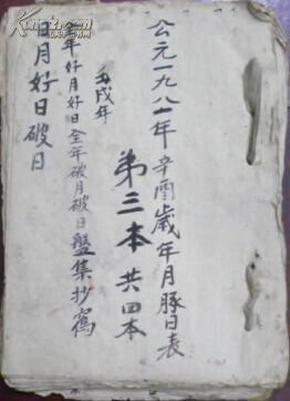 公元一九八一年辛酉歲年月豚日表
第三本共四本
壬戌年
全年好月好日全年破月破日盤集抄寫
日月好日破日